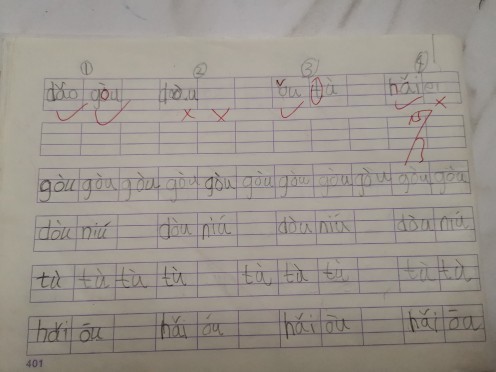 ① ② ③ ④
dǎo gòu dòu ǒu tà hǎi
gòu gòu gòu gòu gòu gòu gòu gòu gòu gòu gòu
dòu niú dòu niú dòu niú dòu niú
tà tà tà tà tà tà tà tà tà
hǎi ōu hǎi óu hǎi òu hǎi ōu
401